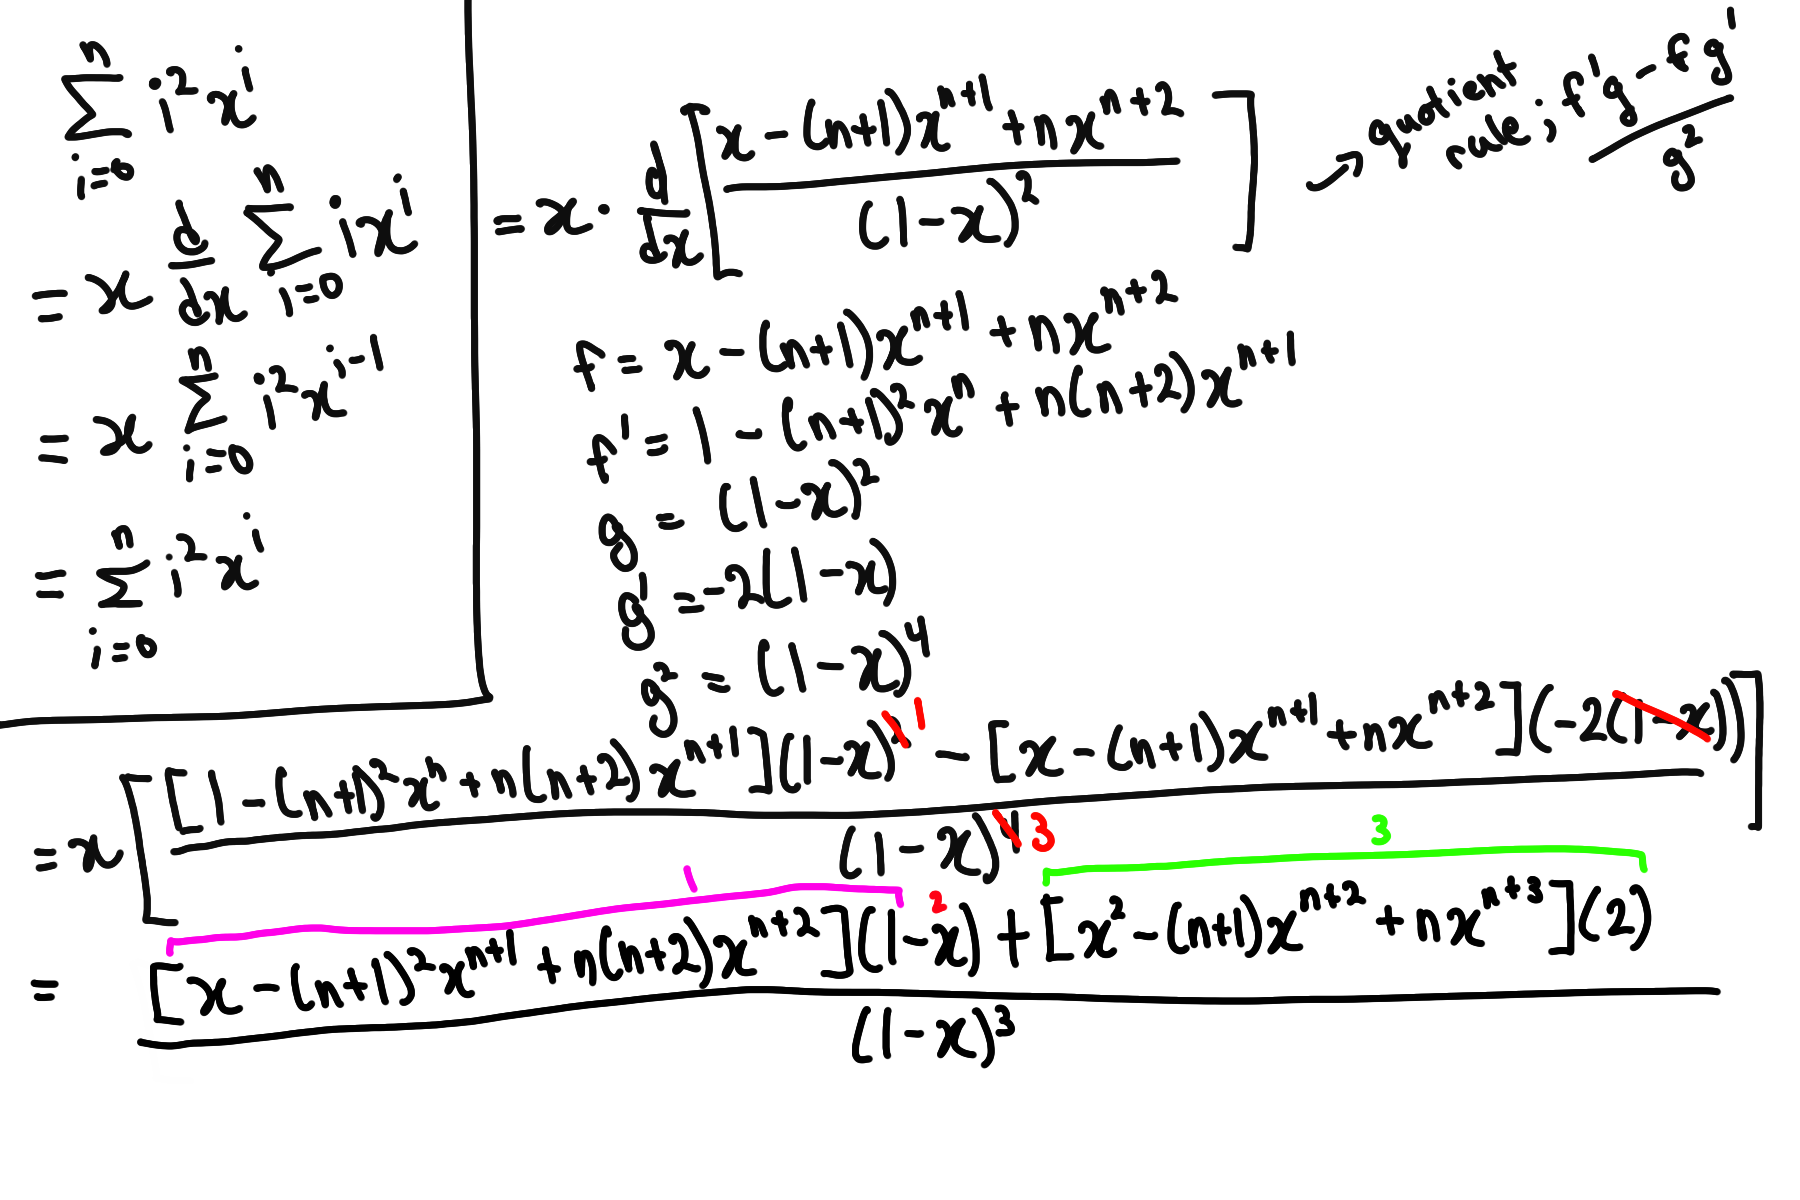 \sum_{i=0}^{n} i^2 x^i
= x \frac{d}{dx} \sum_{i=0}^{n} i x^i
= x \sum_{i=0}^{n} i^2 x^{i-1}
= \sum_{i=0}^{n} i^2 x^i
= x \cdot \frac{d}{dx} \left[ \frac{x - (n+1)x^{n+1} + nx^{n+2}}{(1-x)^2} \right]
→ quotient
rule; \frac{f'g - fg'}{g^2}
f = x - (n+1)x^{n+1} + nx^{n+2}
f' = 1 - (n+1)^2 x^n + n(n+2)x^{n+1}
g = (1-x)^2
g' = -2(1-x)
g^2 = (1-x)^4
= x \left[ \frac{[1 - (n+1)^2 x^n + n(n+2)x^{n+1}](1-x)^{\cancel{2} 1} - [x - (n+1)x^{n+1} + nx^{n+2}](-2\cancel{(1-x)})}{(1-x)^{\cancel{4} 3}} \right]
1 2 3
= \frac{[x - (n+1)^2 x^{n+1} + n(n+2)x^{n+2}](1-x) + [x^2 - (n+1)x^{n+2} + nx^{n+3}](2)}{(1-x)^3}